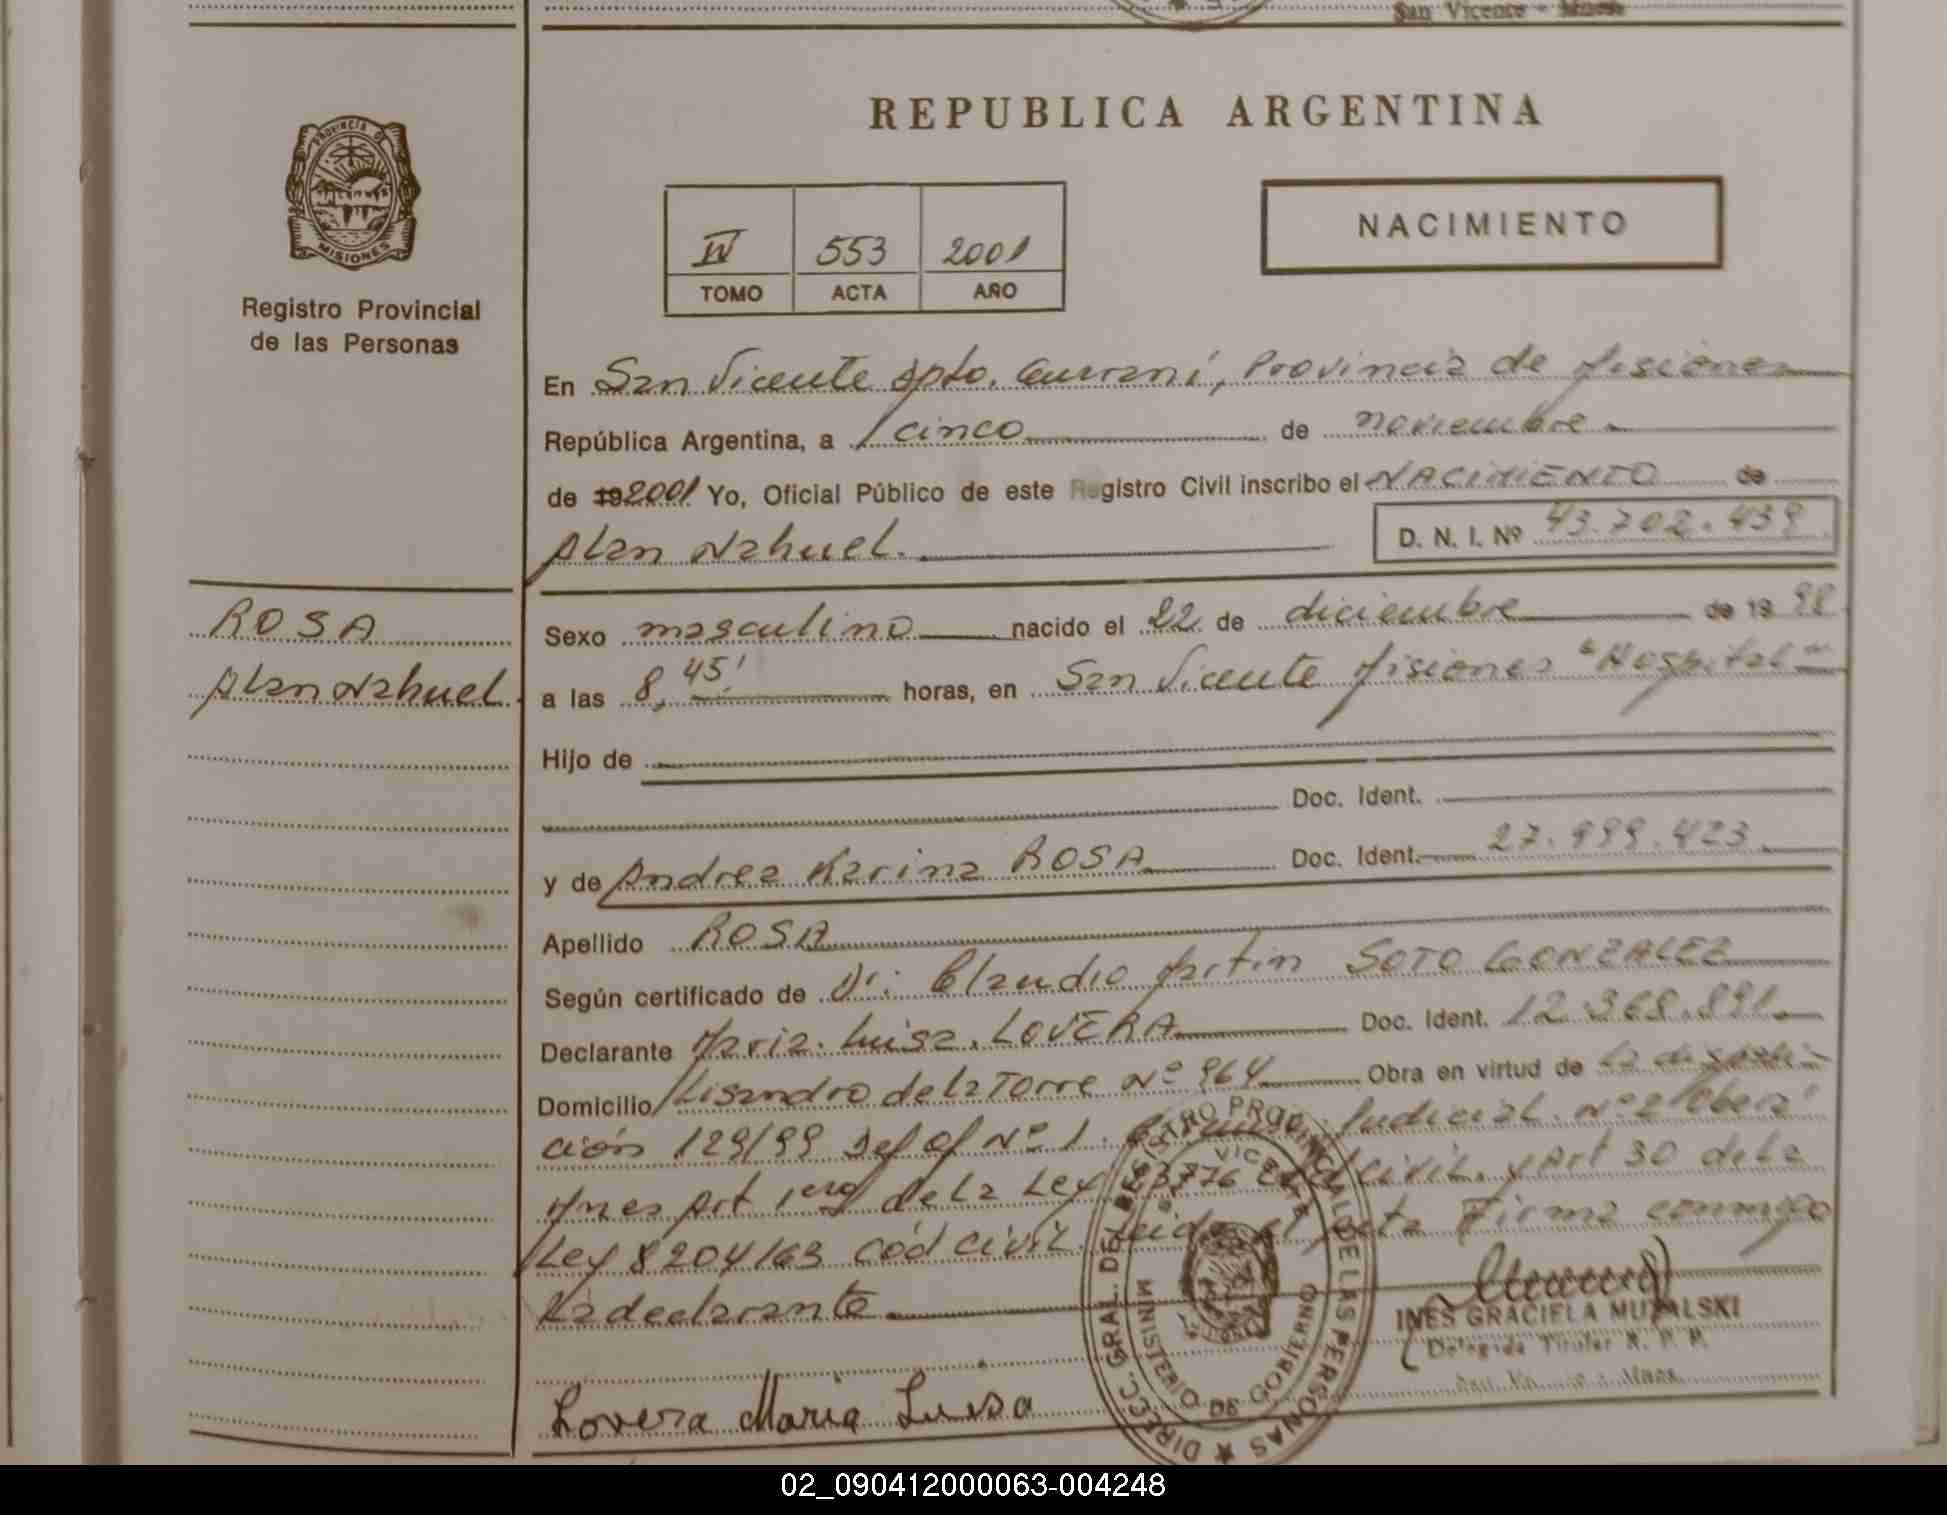 San Vicente - Mnes
REPUBLICA ARGENTINA
PROVINCIA DE
MISIONES
Registro Provincial
de las Personas
NACIMIENTO
IV 553 2001
TOMO ACTA AÑO
En San Vicente Dpto. Guaraní, Provincia de Misiones
República Argentina, a cinco de noviembre
de 192001 Yo, Oficial Público de este Registro Civil inscribo el NACIMIENTO de
Alan Nahuel.
D. N. I. Nº 43.702.439
ROSA
Alan Nahuel.
Sexo masculino nacido el 22 de diciembre de 19 98
a las 8,45' horas, en San Vicente Misiones "Hospital"
Hijo de
Doc. Ident.
y de Andrea Karina ROSA Doc. Ident. 27.999.423
Apellido ROSA
Según certificado de Dr: Claudio Martin SOTO GONZALEZ
Declarante Maria Luisa LOVERA Doc. Ident. 12.368.891
Domicilio Lisandro de la Torre Nº 964 Obra en virtud de la disposi-
ción 129/99 Def of Nº 1. Judicial Nº 2 Obera
Mnes Art 1ero de la Ley 23776 Cod civil. y Art 30 de la
Ley 8204/63 Cód civil. Leida el acta Firma conmigo
La declarante
INES GRACIELA MUZALSKI
Delegada Titular R. P. P.
Lovera Maria Luisa
DIRECC. GRAL. DEL REGISTRO PROVINCIAL DE LAS PERSONAS
SAN VICENTE
MINISTERIO DE GOBIERNO
02_090412000063-004248